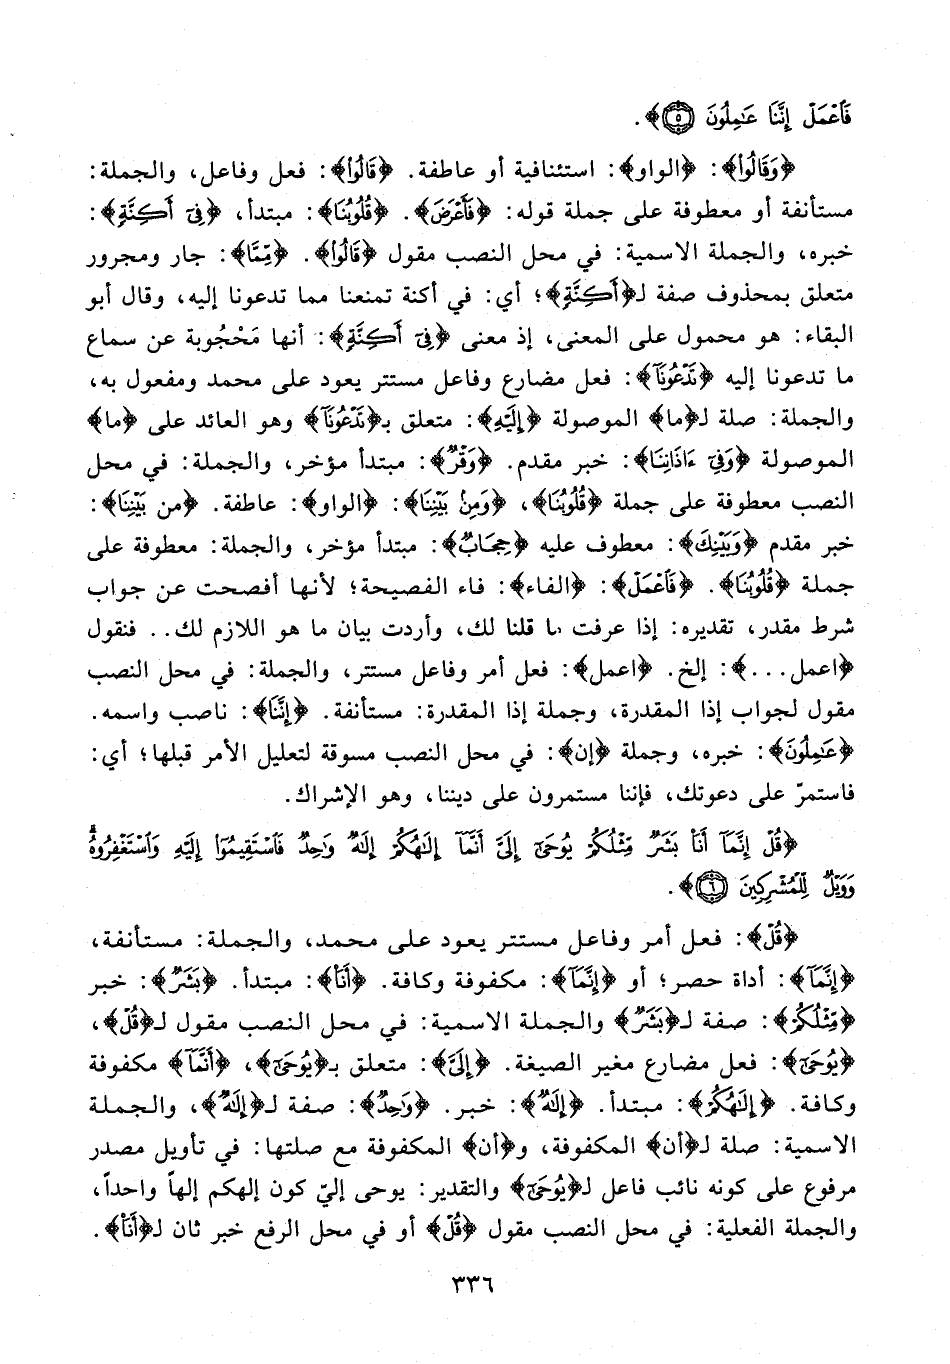 فَاعْمَلْ إِنَّنَا عَامِلُونَ ۝٥﴾.
﴿وَقَالُوا﴾: ﴿الواو﴾: استئنافية أو عاطفة. ﴿قَالُوا﴾: فعل وفاعل، والجملة:
مستأنفة أو معطوفة على جملة قوله: ﴿فَأَعْرَضَ﴾. ﴿قُلُوبُنَا﴾: مبتدأ، ﴿فِي أَكِنَّةٍ﴾:
خبره، والجملة الاسمية: في محل النصب مقول ﴿قَالُوا﴾. ﴿مِّمَّا﴾: جار ومجرور
متعلق بمحذوف صفة لـ﴿أَكِنَّةٍ﴾؛ أي: في أكنة تمنعنا مما تدعونا إليه، وقال أبو
البقاء: هو محمول على المعنى، إذ معنى ﴿فِي أَكِنَّةٍ﴾: أنها مَحْجُوبة عن سماع
ما تدعونا إليه ﴿تَدْعُونَا﴾: فعل مضارع وفاعل مستتر يعود على محمد ومفعول به،
والجملة: صلة لـ﴿ما﴾ الموصولة ﴿إِلَيْهِ﴾: متعلق بـ﴿تَدْعُونَا﴾ وهو العائد على ﴿ما﴾
الموصولة ﴿وَفِي ءَاذَانِنَا﴾: خبر مقدم. ﴿وَقْرٌ﴾: مبتدأ مؤخر، والجملة: في محل
النصب معطوفة على جملة ﴿قُلُوبُنَا﴾، ﴿وَمِنْ بَيْنِنَا﴾: ﴿الواو﴾: عاطفة. ﴿من بَيْنِنَا﴾:
خبر مقدم ﴿وَبَيْنِكَ﴾: معطوف عليه ﴿حِجَابٌ﴾: مبتدأ مؤخر، والجملة: معطوفة على
جملة ﴿قُلُوبُنَا﴾. ﴿فَاعْمَلْ﴾: ﴿الفاء﴾: فاء الفصيحة؛ لأنها أفصحت عن جواب
شرط مقدر، تقديره: إذا عرفت ما قلنا لك، وأردت بيان ما هو اللازم لك.. فنقول
﴿اعمل...﴾: إلخ. ﴿اعمل﴾: فعل أمر وفاعل مستتر، والجملة: في محل النصب
مقول لجواب إذا المقدرة، وجملة إذا المقدرة: مستأنفة. ﴿إِنَّنَا﴾: ناصب واسمه.
﴿عَامِلُونَ﴾: خبره، وجملة ﴿إن﴾: في محل النصب مسوقة لتعليل الأمر قبلها؛ أي:
فاستمرّ على دعوتك، فإننا مستمرون على ديننا، وهو الإشراك.
﴿قُلْ إِنَّمَا أَنَا بَشَرٌ مِّثْلُكُمْ يُوحَى إِلَيَّ أَنَّمَا إِلَهُكُمْ إِلَهٌ وَاحِدٌ فَاسْتَقِيمُوا إِلَيْهِ وَاسْتَغْفِرُوهُ
وَوَيْلٌ لِّلْمُشْرِكِينَ ۝٦﴾.
﴿قُلْ﴾: فعل أمر وفاعل مستتر يعود على محمد، والجملة: مستأنفة،
﴿إِنَّمَا﴾: أداة حصر؛ أو ﴿إِنَّمَا﴾: مكفوفة وكافة. ﴿أَنَا﴾: مبتدأ. ﴿بَشَرٌ﴾: خبر
﴿مِّثْلُكُمْ﴾: صفة لـ﴿بَشَرٌ﴾ والجملة الاسمية: في محل النصب مقول لـ﴿قُلْ﴾،
﴿يُوحَى﴾: فعل مضارع مغير الصيغة. ﴿إِلَيَّ﴾: متعلق بـ﴿يُوحَى﴾، ﴿أَنَّمَا﴾ مكفوفة
وكافة. ﴿إِلَهُكُمْ﴾: مبتدأ. ﴿إِلَهٌ﴾: خبر. ﴿وَاحِدٌ﴾: صفة لـ﴿إِلَهٌ﴾، والجملة
الاسمية: صلة لـ﴿أن﴾ المكفوفة، و﴿أن﴾ المكفوفة مع صلتها: في تأويل مصدر
مرفوع على كونه نائب فاعل لـ﴿يُوحَى﴾ والتقدير: يوحى إليّ كون إلهكم إلهاً واحداً،
والجملة الفعلية: في محل النصب مقول ﴿قُلْ﴾ أو في محل الرفع خبر ثان لـ﴿أَنَا﴾.
٣٣٦